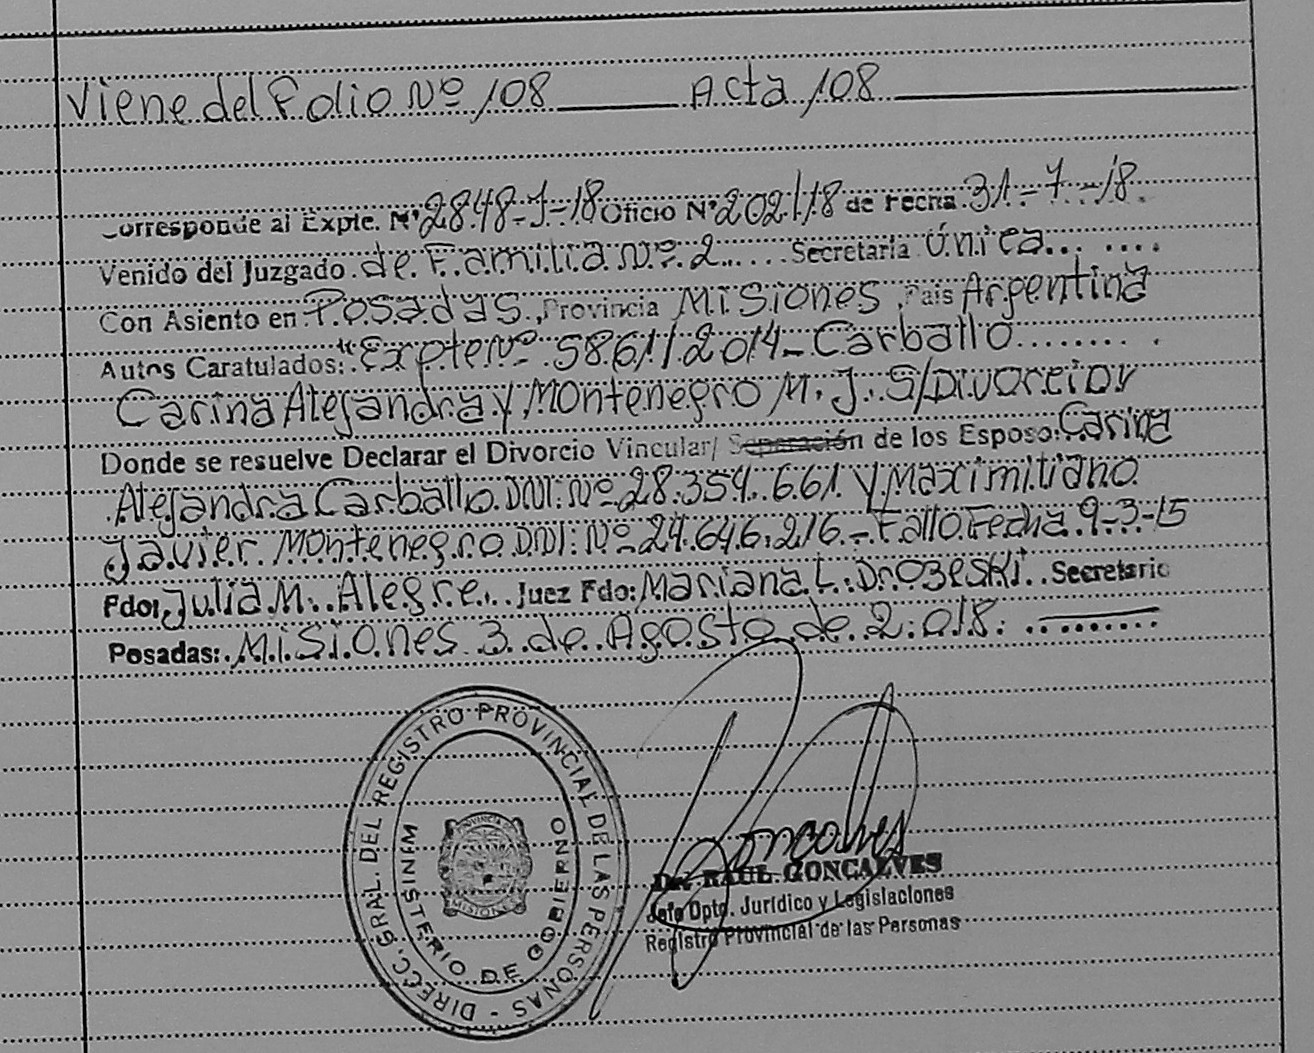 Viene del Folio Nº 108 Acta 108
Corresponde al Expte. Nº 2848-J-18 Oficio Nº 202/18 de Fecha 31-7-18.
Venido del Juzgado de Familia Nº 2 Secretaría Única
Con Asiento en Posadas, Provincia Misiones País Argentina
Autos Caratulados: "Expte Nº 5861/2014- Carballo
Carina Alejandra y Montenegro M. J. S/Divorcio"
Donde se resuelve Declarar el Divorcio Vincular/ Separación de los Esposo: Carina
Alejandra Carballo DNI: Nº 28.354.661 y Maximiliano
Javier Montenegro DNI: Nº 24.646.216.- Fallo Fecha 9-3-15
Fdo: Julia M. Alegre. Juez Fdo: Mariana L. Drozeski. Secretario
Posadas: Misiones 3 de Agosto de 2.018.
DIRECC. GRAL. DEL REGISTRO PROVINCIAL DE LAS PERSONAS -
MINISTERIO DE GOBIERNO
PROVINCIA DE
MISIONES
Goncalves
Dr. RAUL GONCALVES
Jefe Dpto. Jurídico y Legislaciones
Registro Provincial de las Personas